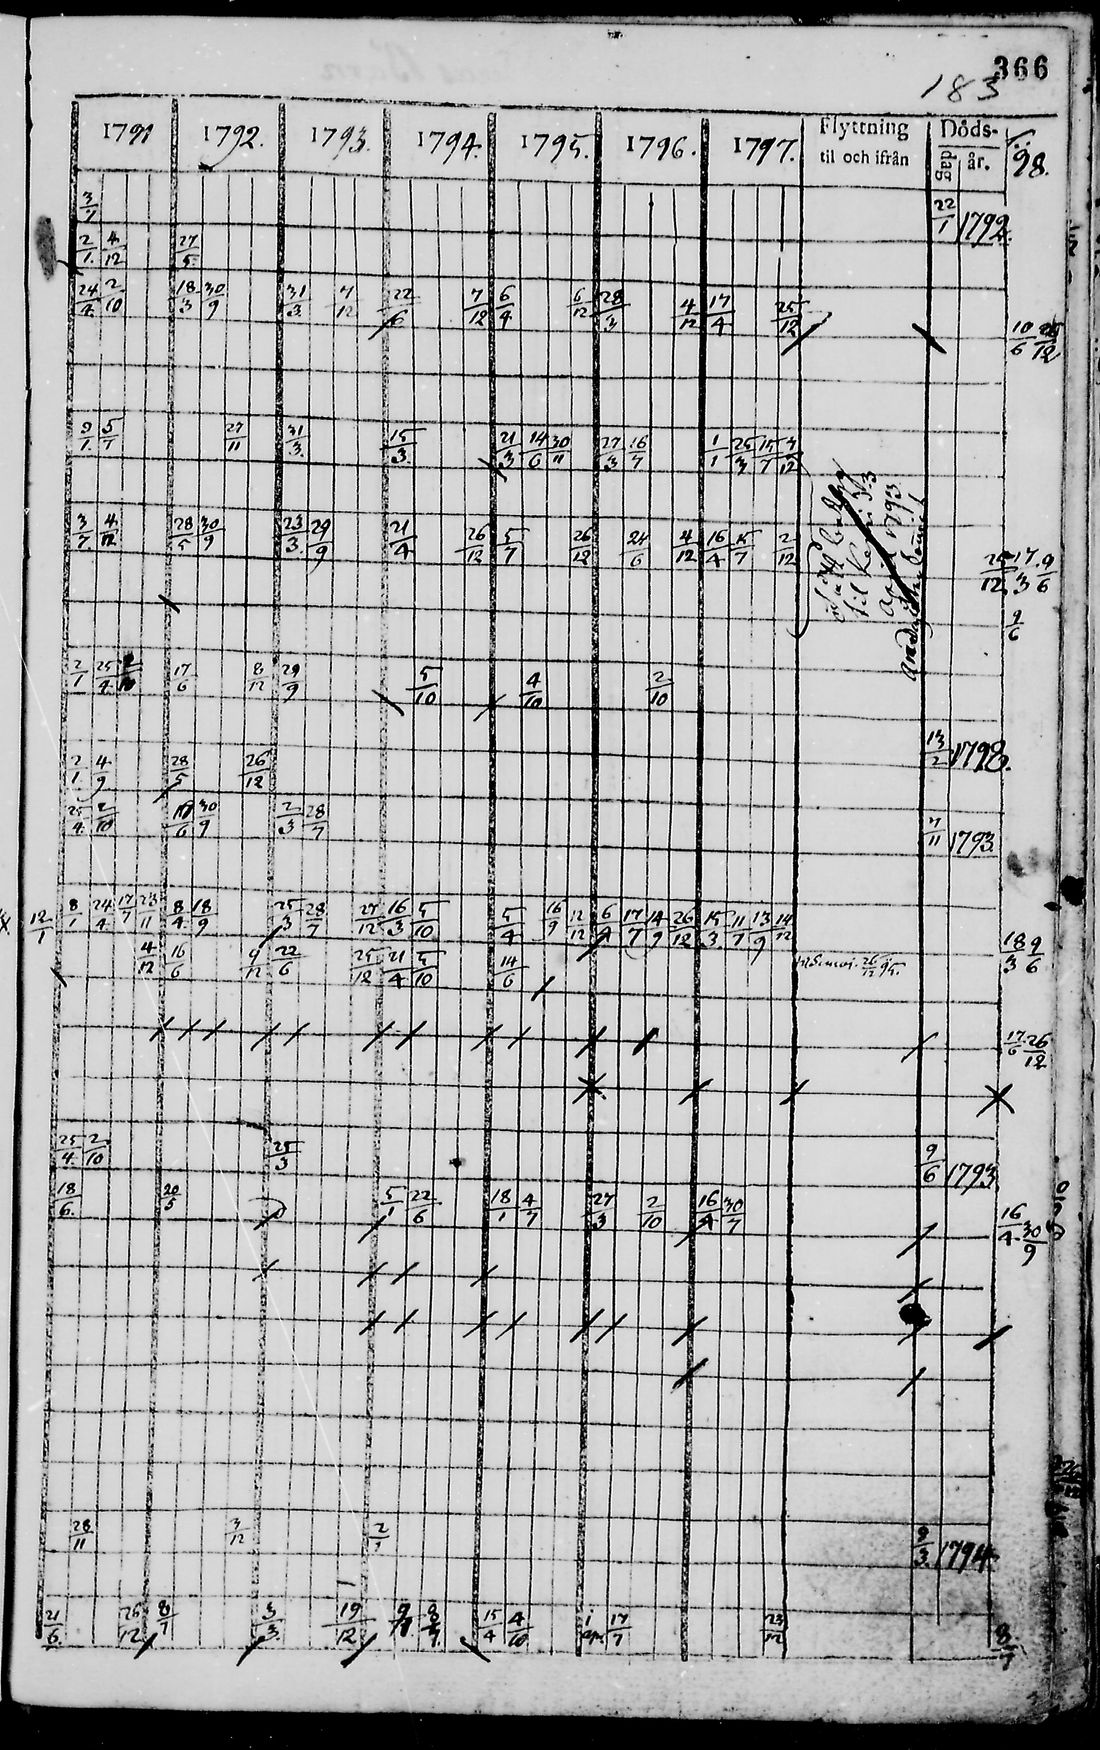 366
183
1791 1792. 1793. 1794. 1795. 1796. 1797. Flyttning till och ifrån Döds- dag år. 98.
3/7 22/1 1792.
2/1 4/12 27/5
24/4 2/10 18/3 30/9 31/3 7/12 22/6 7/12 6/4 6/12 28/3 4/12 17/4 25/12
10/6 26/12
9/1 5/7 27/11 31/3 15/3 21/3 14/6 30/11 27/3 16/7 1/1 25/3 15/7 3/12
3/7 4/12 28/5 30/9 23/3 29/9 21/4 26/12 5/7 26/12 24/6 4/12 16/4 15/7 2/12
25/12 17/3 9/6
9/6
april 1793
2/1 25/4 2/10 17/6 8/12 29/9 5/10 4/10 2/10
13/2 1798.
2/1 4/9 28/5 26/12
25/4 2/10 17/6 30/9 2/3 28/7
7/11 1793
12/1 8/1 24/4 17/7 23/11 8/4 18/9 25/3 28/7 27/12 16/3 5/10 5/4 16/9 12/12 6/4 17/7 14/9 26/12 15/3 11/7 13/9 14/12
4/12 16/6 9/12 22/6 25/12 21/4 5/10 14/6 26/12 95.
18/3 9/6
17/6 26/12
25/4 2/10 25/3 9/6 1793
18/6 20/5 5/1 22/6 18/1 4/7 27/3 2/10 16/4 30/7
16/4 30/9
28/11 3/12 2/1 9/3 1794
21/6 26/12 8/7 3/3 19/12 8/7 15/4 4/10 17/7 23/12
8/7